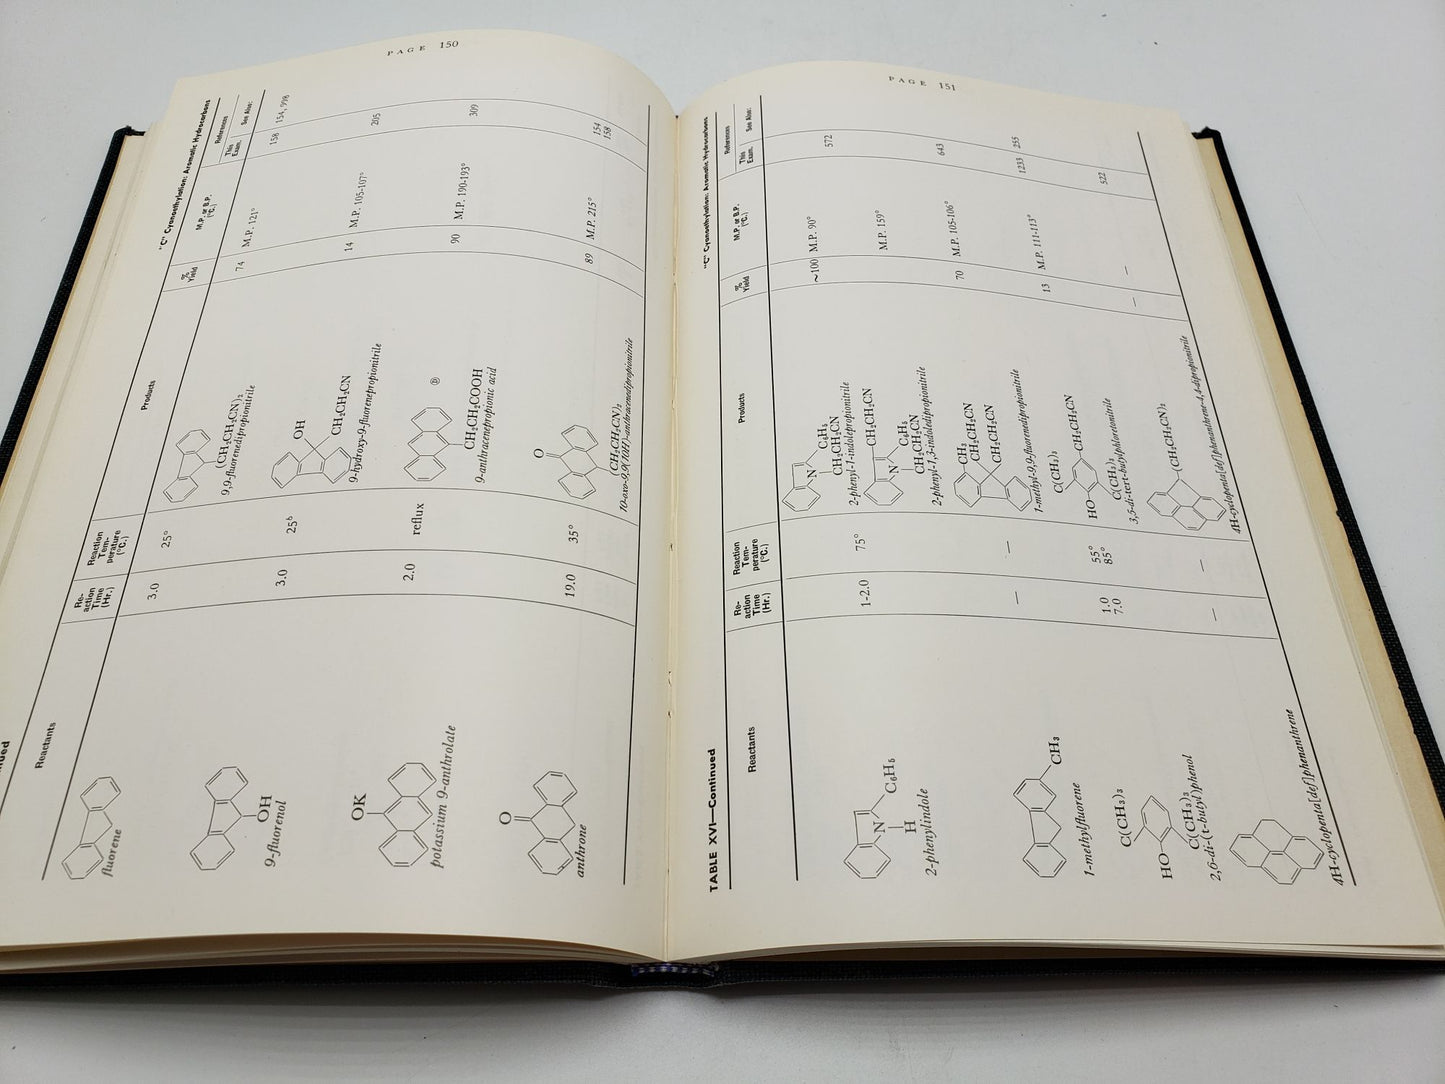 PAGE 150
nued
"C" Cyanoethylation: Aromatic Hydrocarbons
Reactants
Re-
action
Time
(Hr.)
Reaction
Tem-
perature
(°C.)
Products
%
Yield
M.P. or B.P.
(°C.)
References
This
Exam.
See Also:
fluorene
3.0
25°
(CH₂CH₂CN)₂
9,9-fluorenedipropionitrile
74
M.P. 121°
158
154, 998
OH
9-fluorenol
3.0
25⁵
OH
CH₂CH₂CN
9-hydroxy-9-fluorenepropionitrile
14
M.P. 105-107°
205
OK
potassium 9-anthrolate
2.0
reflux
CH₂CH₂COOH
9-anthracenepropionic acid
90
M.P. 190-193°
309
O
anthrone
19.0
35°
O
(CH₂CH₂CN)₂
10-oxo-9,9(10H)-anthracenedipropionitrile
89
M.P. 215°
154
158
PAGE 151
TABLE XVI—Continued
"C" Cyanoethylation: Aromatic Hydrocarbons
Reactants
Re-
action
Time
(Hr.)
Reaction
Tem-
perature
(°C.)
Products
%
Yield
M.P. or B.P.
(°C.)
References
This
Exam.
See Also:
N
C₆H₅
H
2-phenylindole
1-2.0
75°
N
C₆H₅
CH₂CH₂CN
2-phenyl-1-indolepropionitrile
~100
M.P. 90°
572
CH₂CH₂CN
N
C₆H₅
CH₂CH₂CN
2-phenyl-1,3-indoledipropionitrile
M.P. 159°
CH₃
1-methylfluorene
—
—
CH₃
CH₂CH₂CN
CH₂CH₂CN
1-methyl-9,9-fluorenedipropionitrile
70
M.P. 105-106°
643
C(CH₃)₃
HO
C(CH₃)₃
2,6-di-(t-butyl)phenol
1.0
7.0
55°
85°
C(CH₃)₃
HO
CH₂CH₂CN
C(CH₃)₃
3,5-di-tert-butylphloretonitrile
13
M.P. 111-113°
1233
255
4H-cyclopenta[def]phenanthrene
—
—
(CH₂CH₂CN)₂
4H-cyclopenta[def]phenanthrene-4,4-dipropionitrile
—
—
522